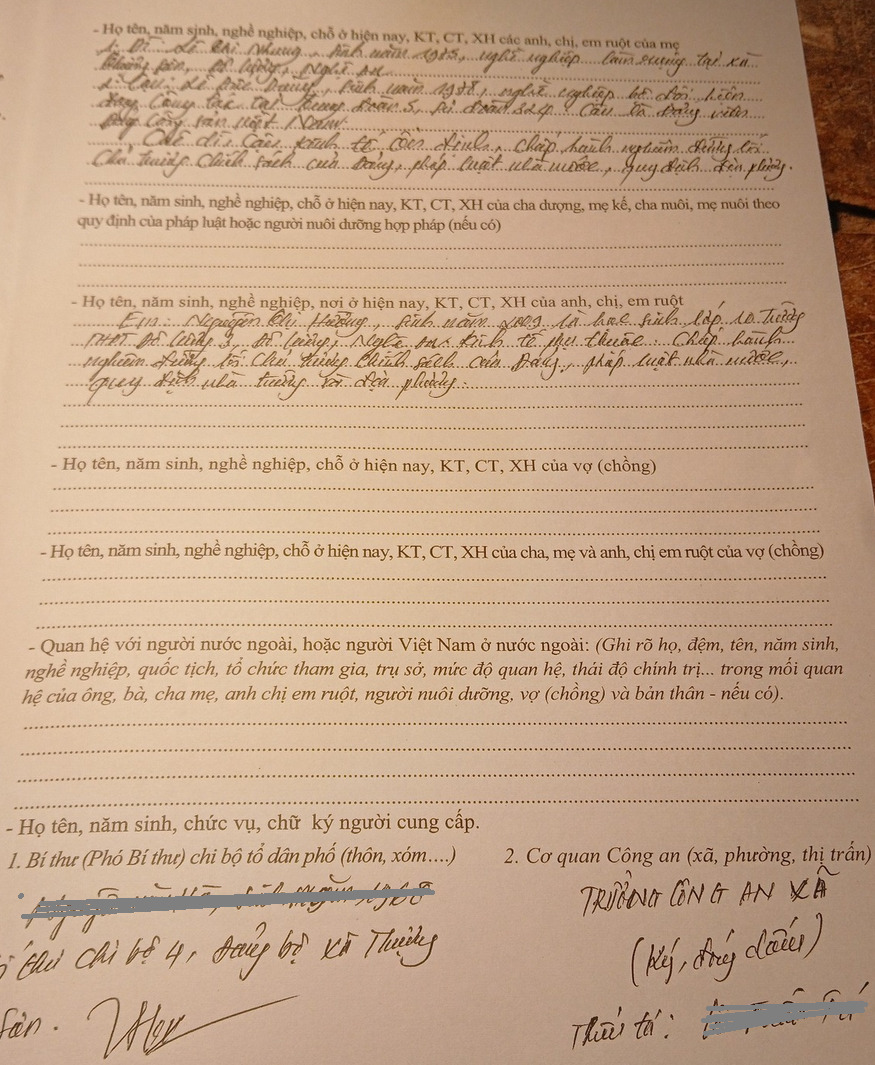 - Họ tên, năm sinh, nghề nghiệp, chỗ ở hiện nay, KT, CT, XH các anh, chị, em ruột của mẹ
1. Dì: Lê Thị Nhung, sinh năm 1985, nghề nghiệp làm ruộng tại xã
Thượng Sơn, Đô Lương, Nghệ An
2. Cậu: Lê Dũng, sinh năm 1988, nghề nghiệp bộ đội hiện
đang công tác tại trung đoàn 5, sư đoàn 324. Cậu là Đảng viên
Đảng Cộng sản Việt Nam.
Các dì, cậu kinh tế ổn định, chấp hành nghiêm đường lối
chủ trương chính sách của Đảng, pháp luật nhà nước, quy định địa phương.
- Họ tên, năm sinh, nghề nghiệp, chỗ ở hiện nay, KT, CT, XH của cha dượng, mẹ kế, cha nuôi, mẹ nuôi theo
quy định của pháp luật hoặc người nuôi dưỡng hợp pháp (nếu có)
- Họ tên, năm sinh, nghề nghiệp, nơi ở hiện nay, KT, CT, XH của anh, chị, em ruột
Em: Nguyễn Thị Hường, sinh năm 2009 là học sinh lớp 10 trường
THPT Đô Lương 3, Đô Lương, Nghệ An. Kinh tế phụ thuộc. Chấp hành
nghiêm đường lối chủ trương chính sách của Đảng, pháp luật nhà nước,
quy định nhà trường và địa phương.
- Họ tên, năm sinh, nghề nghiệp, chỗ ở hiện nay, KT, CT, XH của vợ (chồng)
- Họ tên, năm sinh, nghề nghiệp, chỗ ở hiện nay, KT, CT, XH của cha, mẹ và anh, chị em ruột của vợ (chồng)
- Quan hệ với người nước ngoài, hoặc người Việt Nam ở nước ngoài: (Ghi rõ họ, đệm, tên, năm sinh,
nghề nghiệp, quốc tịch, tổ chức tham gia, trụ sở, mức độ quan hệ, thái độ chính trị... trong mối quan
hệ của ông, bà, cha mẹ, anh chị em ruột, người nuôi dưỡng, vợ (chồng) và bản thân - nếu có).
- Họ tên, năm sinh, chức vụ, chữ ký người cung cấp.
1. Bí thư (Phó Bí thư) chi bộ tổ dân phố (thôn, xóm....)
2. Cơ quan Công an (xã, phường, thị trấn)
TRƯỞNG CÔNG AN XÃ
thư chi bộ 4, Đảng bộ xã Thượng
(Ký, đóng dấu)
Sơn.
Thiếu tá: